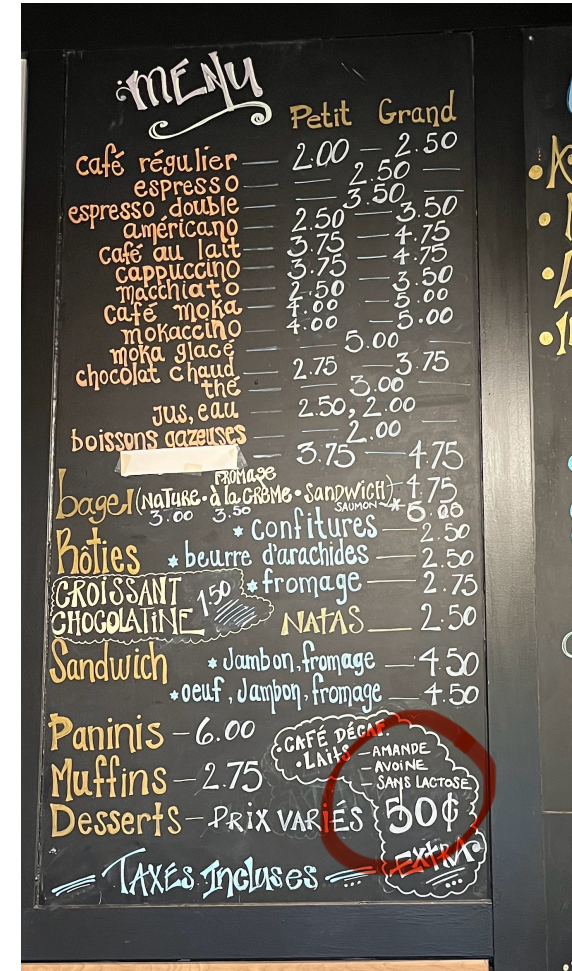 MENU
Petit Grand
café régulier — 2.00 — 2.50
espresso — 2.50 —
espresso double — 3.50 —
américano — 2.50 — 3.50
café au lait — 3.75 — 4.75
cappuccino — 3.75 — 4.75
macchiato — 2.50 — 3.50
café moka — 4.00 — 5.00
mokaccino — 4.00 — 5.00
moka glacé — 5.00 —
chocolat chaud — 2.75 — 3.75
thé — 3.00 —
jus, eau — 2.50, 2.00
boissons gazeuses — 2.00 —
— 3.75 — 4.75
bagel (NATURE • à la CRÈME • SANDWICH) 4.75
FROMAGE
3.00 3.50 SAUMON * 6.00
* confitures — 2.50
Rôties * beurre d'arachides — 2.50
* fromage — 2.75
CROISSANT
CHOCOLATINE 1.50
NATAS — 2.50
Sandwich * Jambon, fromage — 4.50
* oeuf, Jambon, fromage — 4.50
Paninis — 6.00
Muffins — 2.75
Desserts — PRIX VARIÉS
• CAFÉ DÉCAF.
• LAITS — AMANDE
— AVOINE
— SANS LACTOSE
50¢
EXTRA
TAXES Incluses